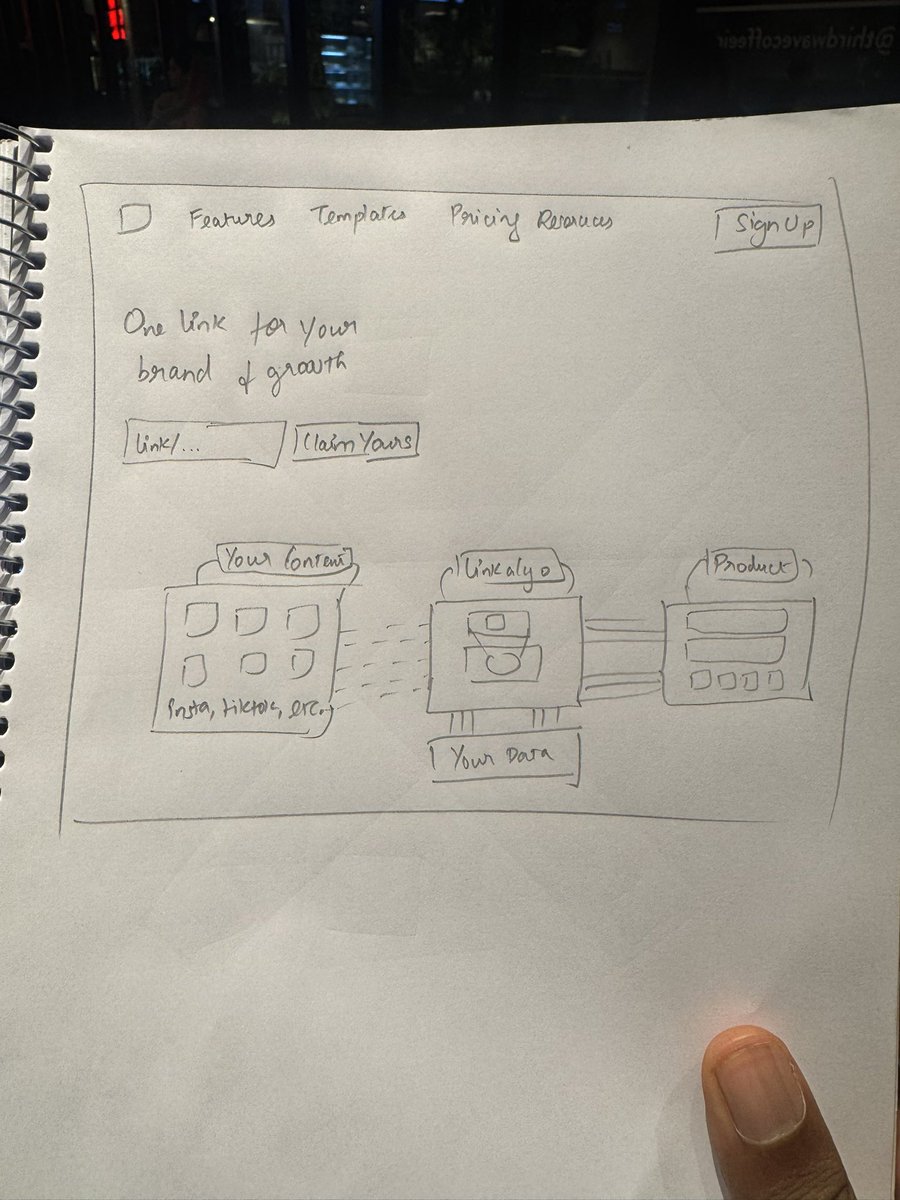 @thirdwavecoffeein
Features Templates Pricing Resources Sign Up
One link for your
brand & growth
link/... Claim Yours
Your Content linkalyo Product
insta, tiktok, etc.
Your Data